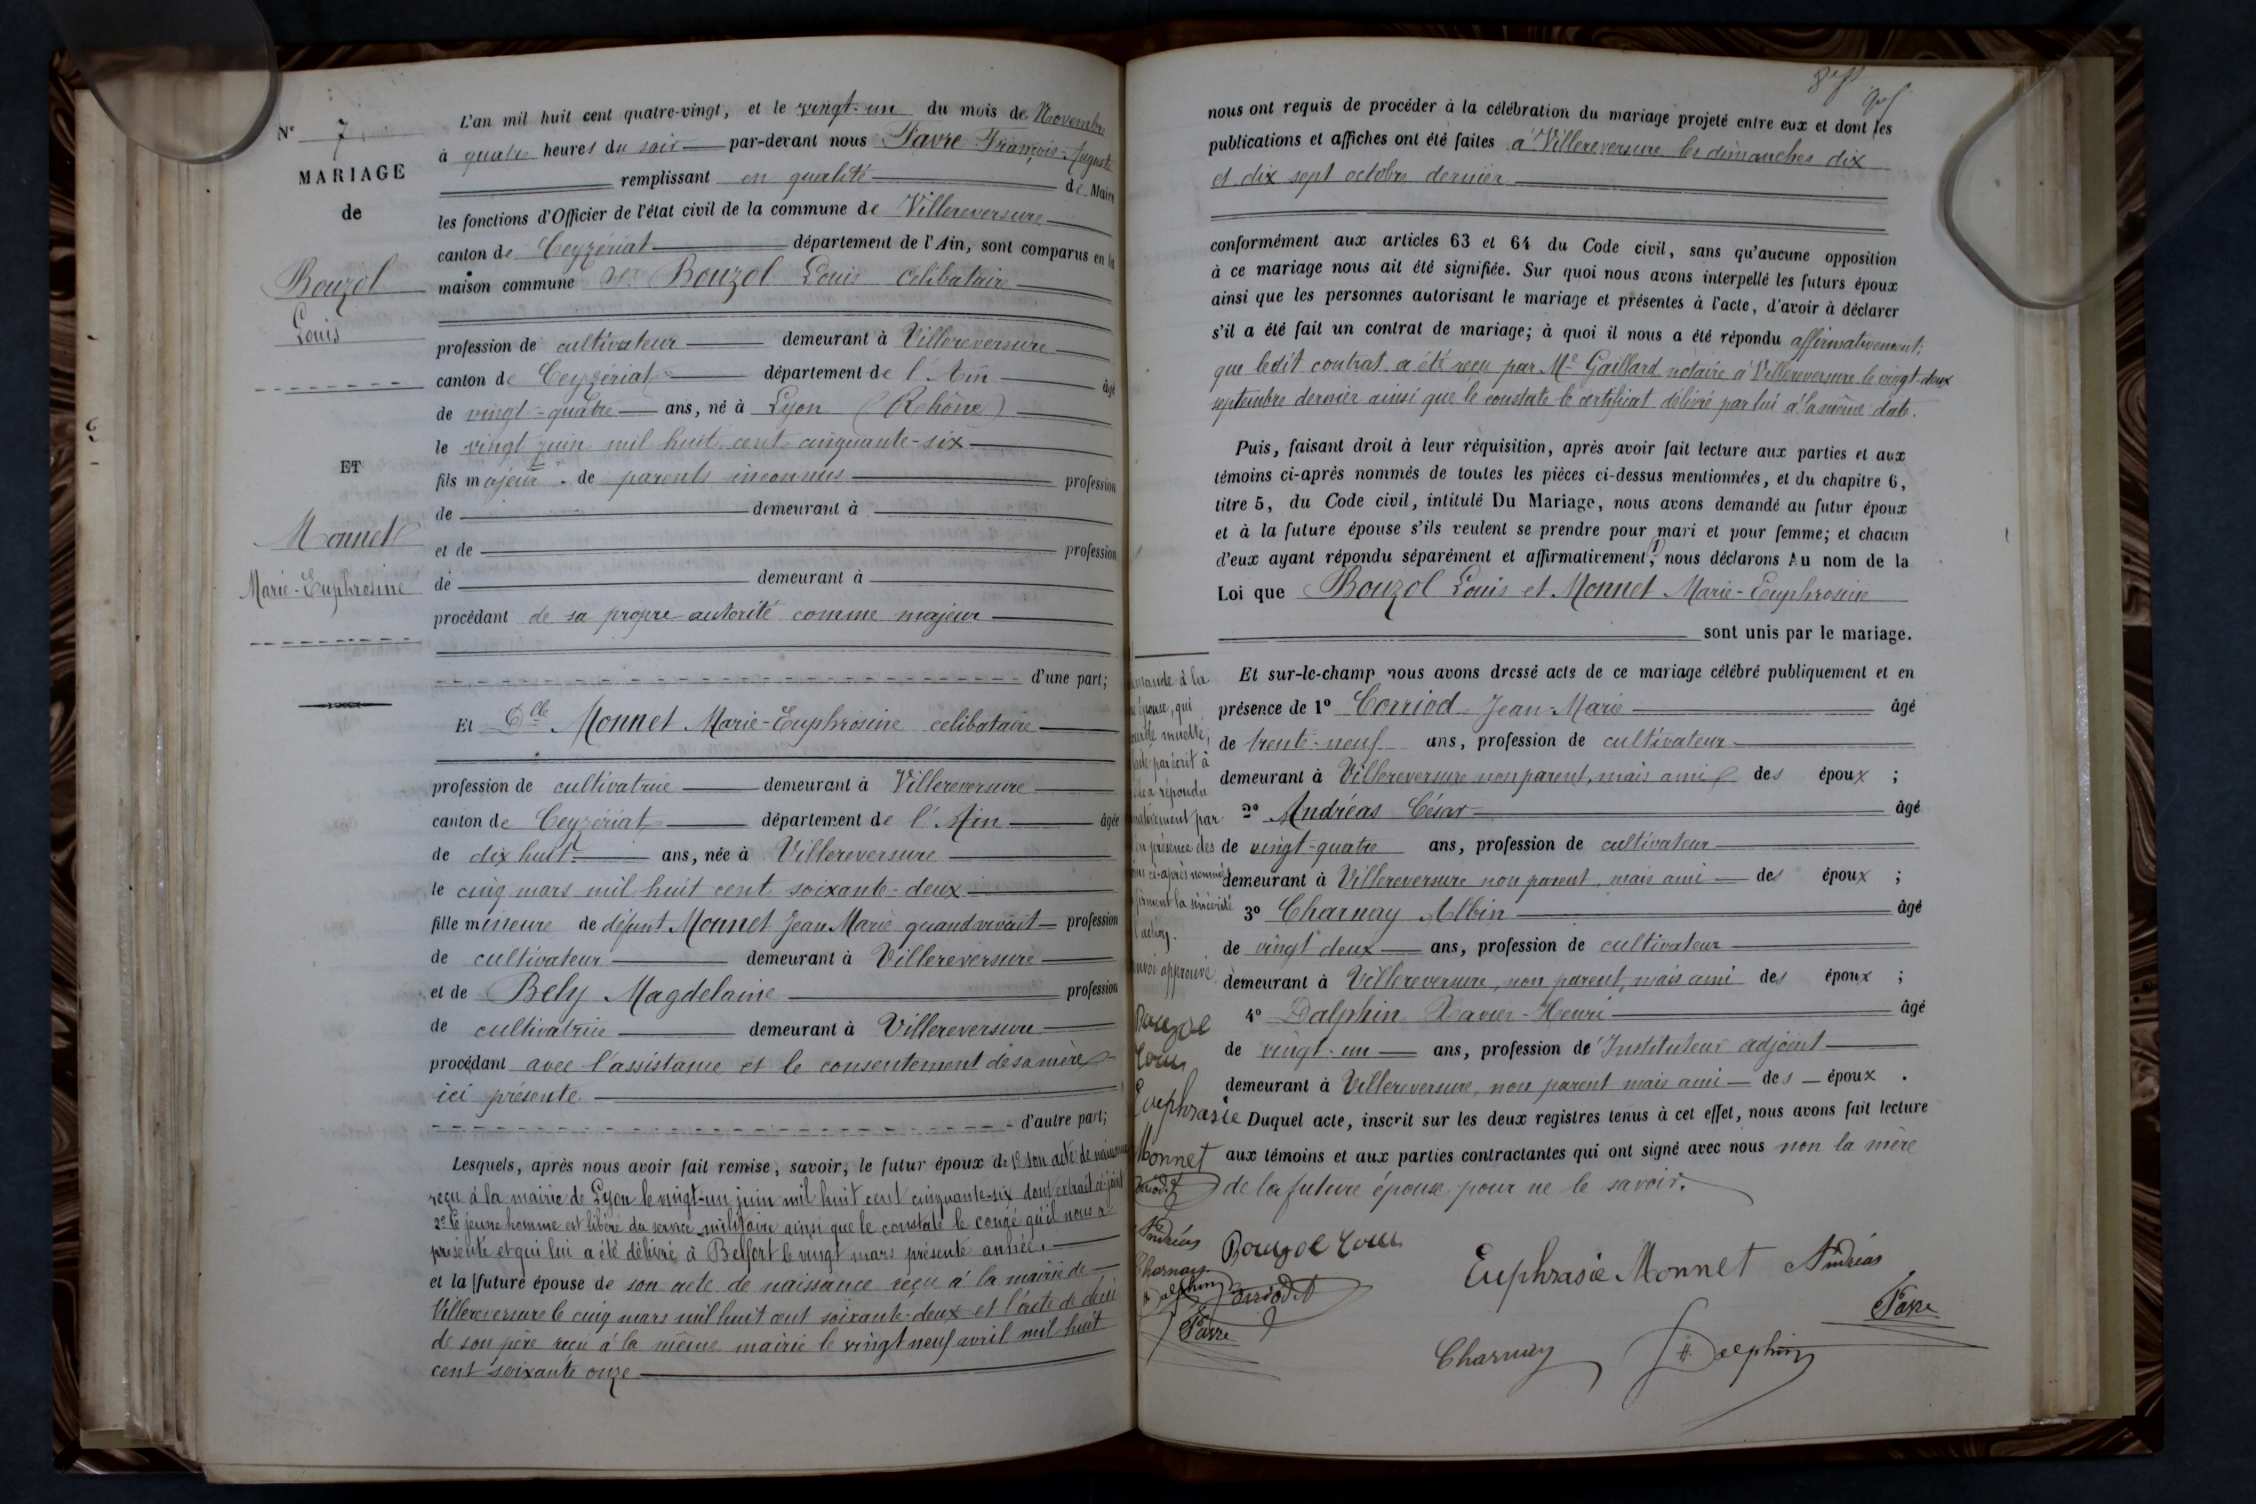 N° 7
MARIAGE
de
Bouzol
Louis
ET
Monnet
Marie-Euphrosine
L'an mil huit cent quatre-vingt, et le vingt-un du mois de Novembre
à quatre heures du soir par-devant nous Favre François-Auguste
remplissant en qualité de Maire
les fonctions d'Officier de l'état civil de la commune de Villereversure
canton de Ceyzériat département de l'Ain, sont comparus en la
maison commune Sr Bouzol Louis célibataire
profession de cultivateur demeurant à Villereversure
canton de Ceyzériat département de l'Ain âgé
de vingt-quatre ans, né à Lyon (Rhône)
le vingt juin mil huit cent cinquante-six
fils majeur de parents inconnus profession
de demeurant à
et de profession
de demeurant à
procédant de sa propre autorité comme majeur
d'une part;
Et Dlle Monnet Marie-Euphrosine célibataire
profession de cultivatrice demeurant à Villereversure
canton de Ceyzériat département de l'Ain âgée
de dix huit ans, née à Villereversure
le cinq mars mil huit cent soixante-deux
fille mineure de défunt Monnet Jean Marie quand vivait profession
de cultivateur demeurant à Villereversure
et de Bely Magdelaine profession
de cultivatrice demeurant à Villereversure
procédant avec l'assistance et le consentement de sa mère
ici présente
d'autre part;
Lesquels, après nous avoir fait remise, savoir, le futur époux de 1° son acte de naissance
reçu à la mairie de Lyon le vingt-un juin mil huit cent cinquante-six dont extrait ci-joint
2° Ce jeune homme est libéré du service militaire ainsi que le constate le congé qu'il nous a
présenté et qui lui a été délivré à Belfort le vingt mars présente année.
et la future épouse de son acte de naissance reçu à la mairie de
Villereversure le cinq mars mil huit cent soixante-deux et l'acte de décès
de son père reçu à la même mairie le vingt neuf avril mil huit
cent soixante onze
nous ont requis de procéder à la célébration du mariage projeté entre eux et dont les
publications et affiches ont été faites à Villereversure les dimanches dix
et dix sept octobre dernier
conformément aux articles 63 et 64 du Code civil, sans qu'aucune opposition
à ce mariage nous ait été signifiée. Sur quoi nous avons interpellé les futurs époux
ainsi que les personnes autorisant le mariage et présentes à l'acte, d'avoir à déclarer
s'il a été fait un contrat de mariage; à quoi il nous a été répondu affirmativement;
que ledit contrat a été reçu par Me Gaillard notaire à Villereversure le vingt-deux
septembre dernier ainsi que le constate le certificat délivré par lui à la même date.
Puis, faisant droit à leur réquisition, après avoir fait lecture aux parties et aux
témoins ci-après nommés de toutes les pièces ci-dessus mentionnées, et du chapitre 6,
titre 5, du Code civil, intitulé Du Mariage, nous avons demandé au futur époux
et à la future épouse s'ils veulent se prendre pour mari et pour femme; et chacun
d'eux ayant répondu séparément et affirmativement, (1) nous déclarons Au nom de la
Loi que Bouzol Louis et Monnet Marie-Euphrosine
sont unis par le mariage.
Et sur-le-champ nous avons dressé acte de ce mariage célébré publiquement et en
présence de 1° Corriod Jean-Marie âgé
de trente-neuf ans, profession de cultivateur
demeurant à Villereversure non parent, mais ami des époux ;
2° Andréas César âgé
de vingt-quatre ans, profession de cultivateur
demeurant à Villereversure non parent, mais ami des époux ;
3° Charnay Albin âgé
de vingt deux ans, profession de cultivateur
demeurant à Villereversure, non parent, mais ami des époux ;
4° Dalphin Xavier-Henri âgé
de vingt-un ans, profession de Instituteur adjoint
demeurant à Villereversure, non parent mais ami des époux .
Duquel acte, inscrit sur les deux registres tenus à cet effet, nous avons fait lecture
aux témoins et aux parties contractantes qui ont signé avec nous non la mère
de la future épouse pour ne le savoir.
mande à la
épouse, qui
muette;
par écrit à
a répondu
par
en présence des
ci-après nommés
la sincérité
approuvé
Bouzol
Louis
Euphrasie
Monnet
Andréas
Charnay
Dalphin
Favre
Bouzol Louis
Euphrasie Monnet Andréas
Corriod
Favre
Charnay H. Dalphin